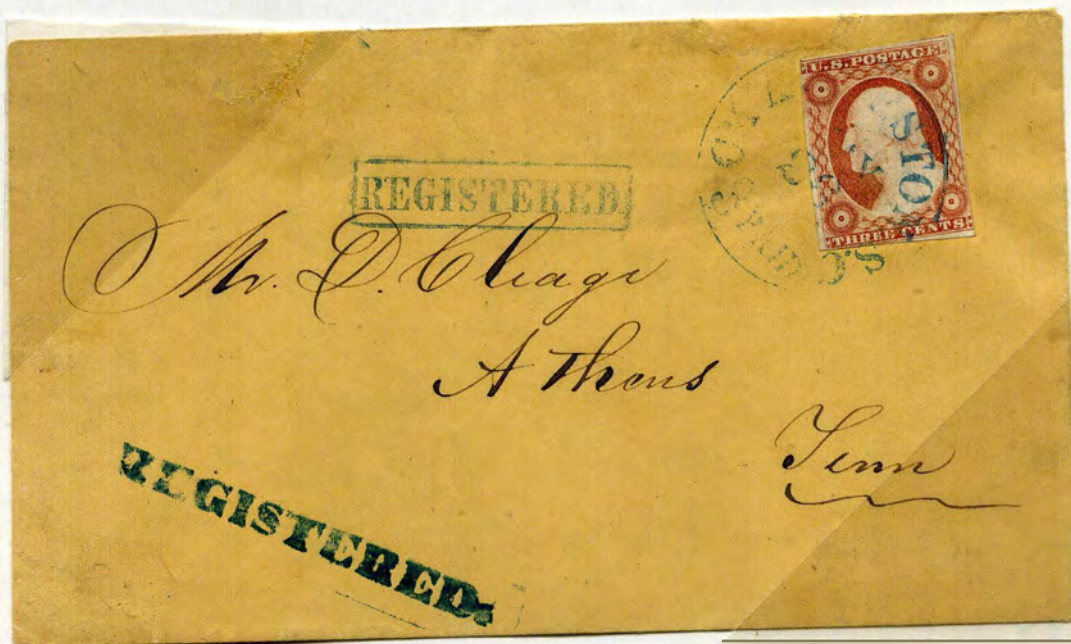 U.S. POSTAGE
THREE CENTS
PAID
STON
S.C
REGISTERED
Mr. D. Cleage
Athens
Tenn
REGISTERED.